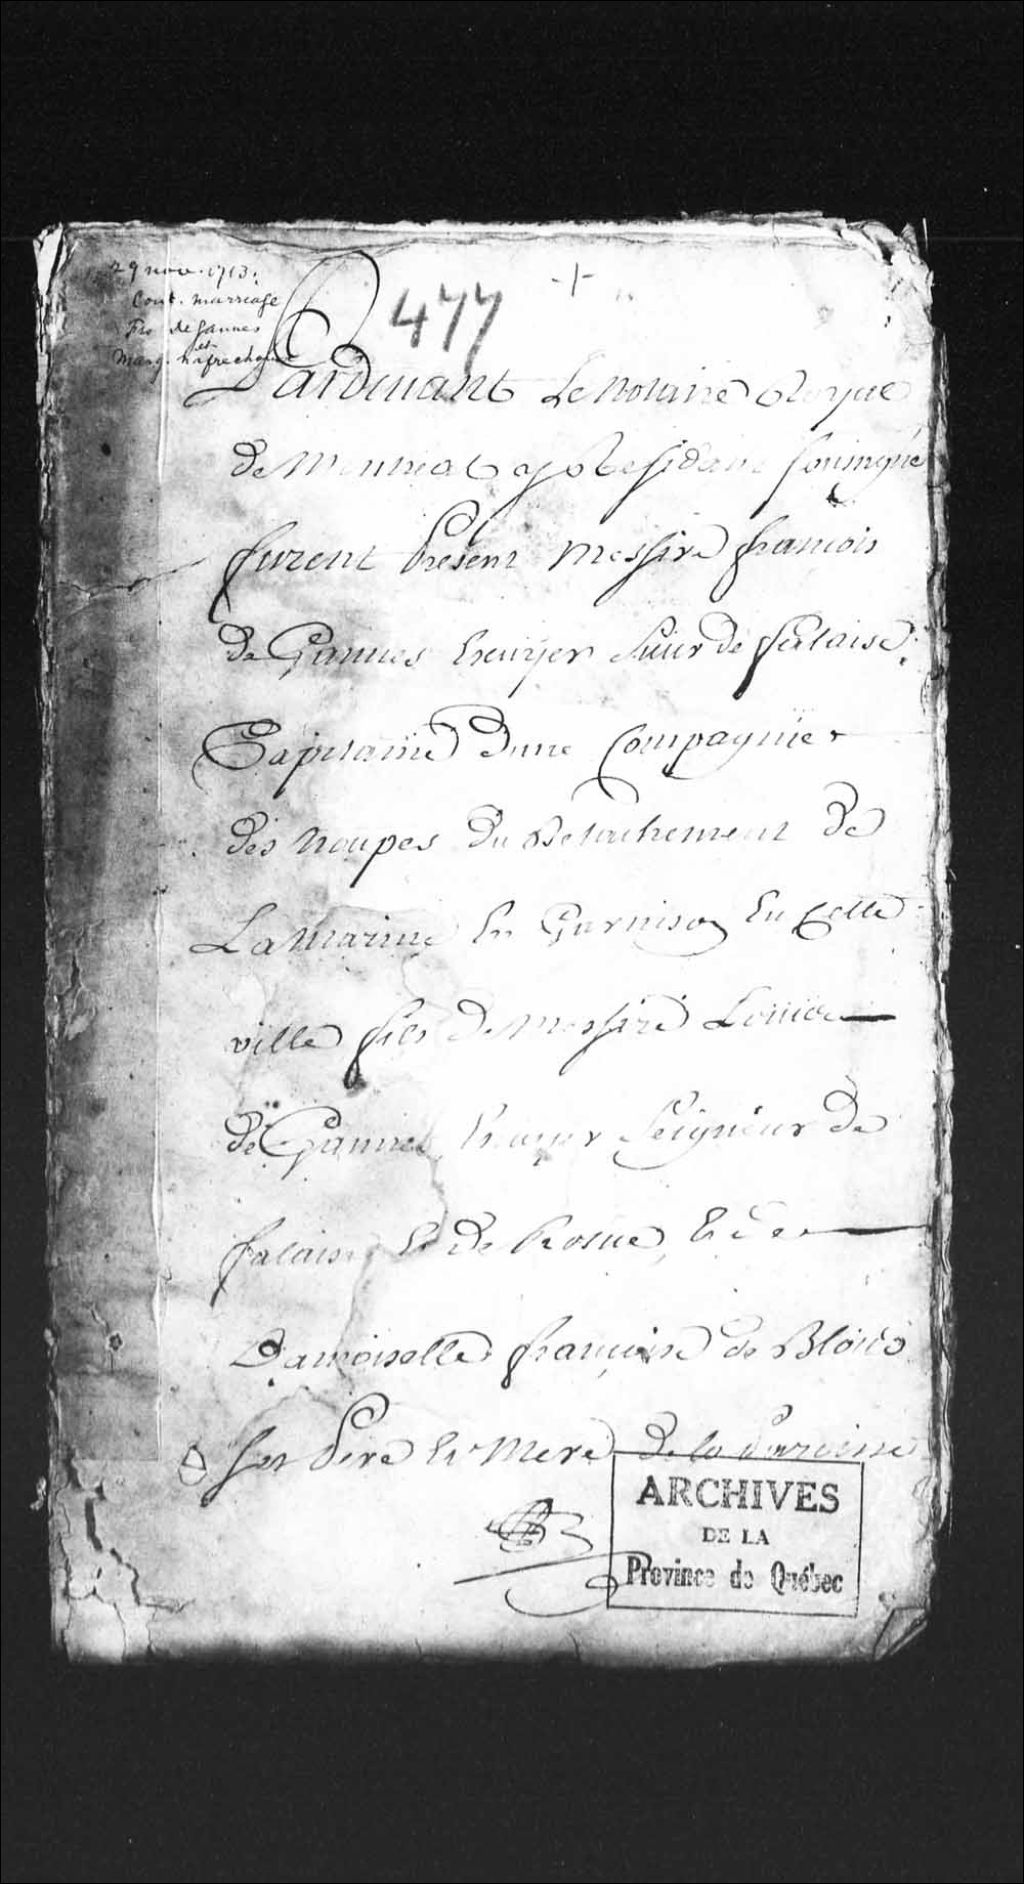 29 nov. 1713.
Cont. marriage
Frs de Gannes
et
Marg. Nafrechoux
477
Pardevant Le Notaire Royal
de Monreal y Residant soussigné
furent Présent Messire francois
de Gannes Ecuyer Sieur de falaise
Capitaine Dune Compagnie
des troupes du Detachement de
La Marine En Garnison En Cette
ville fils de Messire Louis
de Gannes Ecuyer Seigneur de
falaise Et de Rosne, Et de
Damoiselle francoise de Blois
ses Père Et Mere de la Paroisse
ARCHIVES
DE LA
Province de Québec